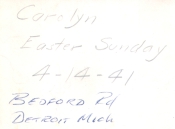 Carolyn
Easter Sunday
4-14-41
BEDFORD Rd
DETROIT MICH